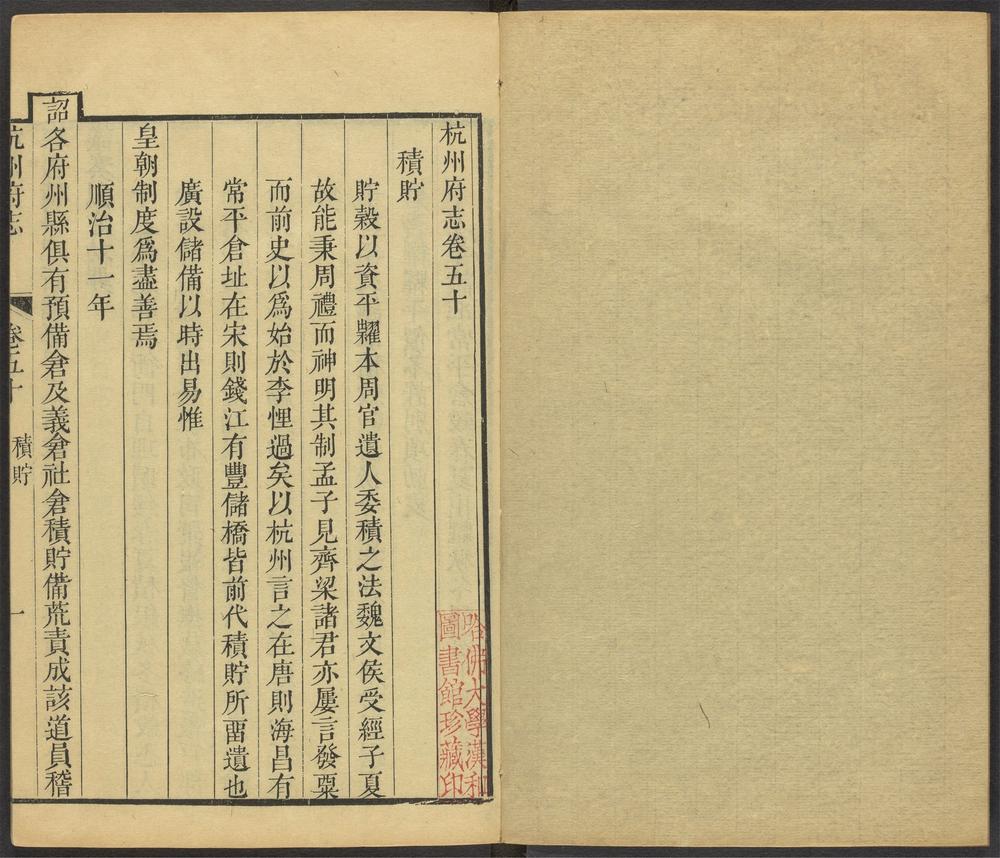 杭州府志卷五十
積貯
貯穀以資平糶本周官遺人委積之法魏文侯受經子夏
故能秉周禮而神明其制孟子見齊梁諸君亦屢言發粟
而前史以爲始於李悝過矣以杭州言之在唐則海昌有
常平倉址在宋則錢江有豐儲橋皆前代積貯所畱遺也
廣設儲備以時出易惟
皇朝制度爲盡善焉
順治十一年
詔各府州縣俱有預備倉及義倉社倉積貯備荒責成該道員稽
杭州府志
卷五十
積貯
一
哈佛大學漢和
圖書館珍藏印